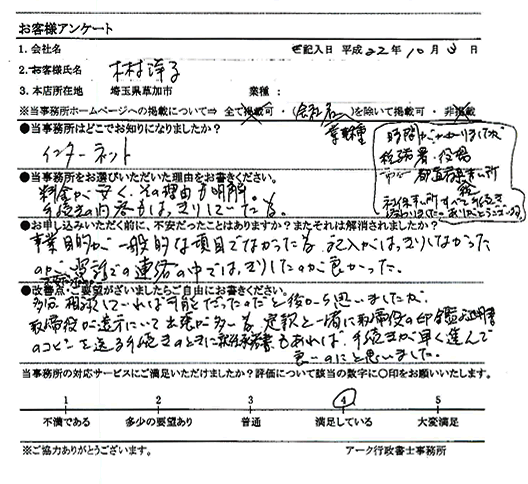 お客様アンケート
1. 会社名
ご記入日 平成 22年 10月 3日
2. お客様氏名 木村洋子
3. 本店所在地 埼玉県草加市 業種:
※当事務所ホームページへの掲載について⇒ 全て掲載可 ・ (会社名 )を除いて掲載可 ・ 非掲載
業種
●当事務所はどこでお知りになりましたか?
インターネット
時間がかかりましたが
税務署・役場
●当事務所をお選びいただいた理由をお書きください。
料金が安く、その理由も明解。
手続きの内容もはっきりしている為。
すべて手続き
終わりました。ありがとうございます
●お申し込みいただく前に、不安だったことはありますか?またそれは解消されましたか?
事業目的が一般的な項目でなかった為、記入がはっきりしなかった
のが 電話での連絡の中ではっきりしたのが良かった。
●改善点・ご要望がございましたらご自由にお書きください。
多分相談していれば可能だったのだと後から思いましたが
取締役が遠方にいて出張が多い為、定款と一緒に取締役の印鑑証明書
のコピーを送る手続きのときに就任承諾書もあれば、手続きが早く進んで
良いのにと思いました。
当事務所の対応サービスにご満足いただけましたか?評価について該当の数字に○印をお願いいたします。
1 2 3 4 5
不満である 多少の要望あり 普通 満足している 大変満足
※ご協力ありがとうございます。 アーク行政書士事務所